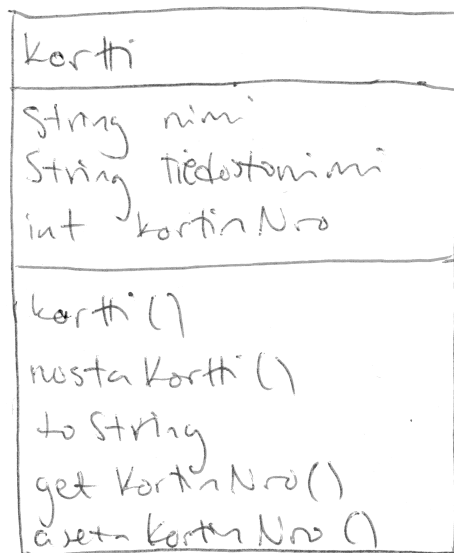 kortti
String nimi
String tiedostonimi
int kortinNro
kortti()
nostaKortti()
toString
getKortinNro()
asetaKortinNro()